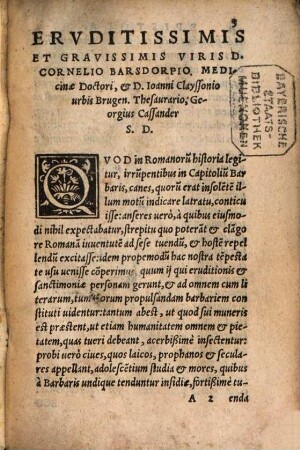 3
ERVDITISSIMIS
ET GRAVISSIMIS VIRIS D.
CORNELIO BARSDORPIO, MEDI-
cinæ Doctori, & D. Ioanni Clayssonio
urbis Brugen. Thesaurario, Georgius
Cassander
S. D.
BAYERISCHE
STAATS-
BIBLIOTHEK
MUENCHEN
QVOD in Romanorũ historia legi-
tur, irrũpentibus in Capitoliũ Bar
baris, canes, quorũ erat insolẽtẽ il
lum motũ indicare latratu, conticu
isse: anseres uerò, à quibus eiusmo
di nihil expectabatur, strepitu quo poterãt & clãgo
re Romanã iuuentutẽ ad sese tuendũ, & hostẽ repel
lendũ excitasse: idem propemodũ hac nostra tẽpesta
te usu uenisse cõperimus, quum ij qui eruditionis &
sanctimoniæ personam gerunt, & ad omnem cum li
terarum, tum morum propulsandam barbariem con
stituti uidentur: tantum abest, ut quod sui muneris
est præstent, ut etiam humanitatem omnem & pie-
tatem, quas tueri debeant, acerbißimè insectentur:
probi verò ciues, quos laicos, prophanos & secula-
res appellant, adolescẽtium studia & mores, quibus
à Barbaris undique tenduntur insidiæ, fortißimè tu-
A 2 enda